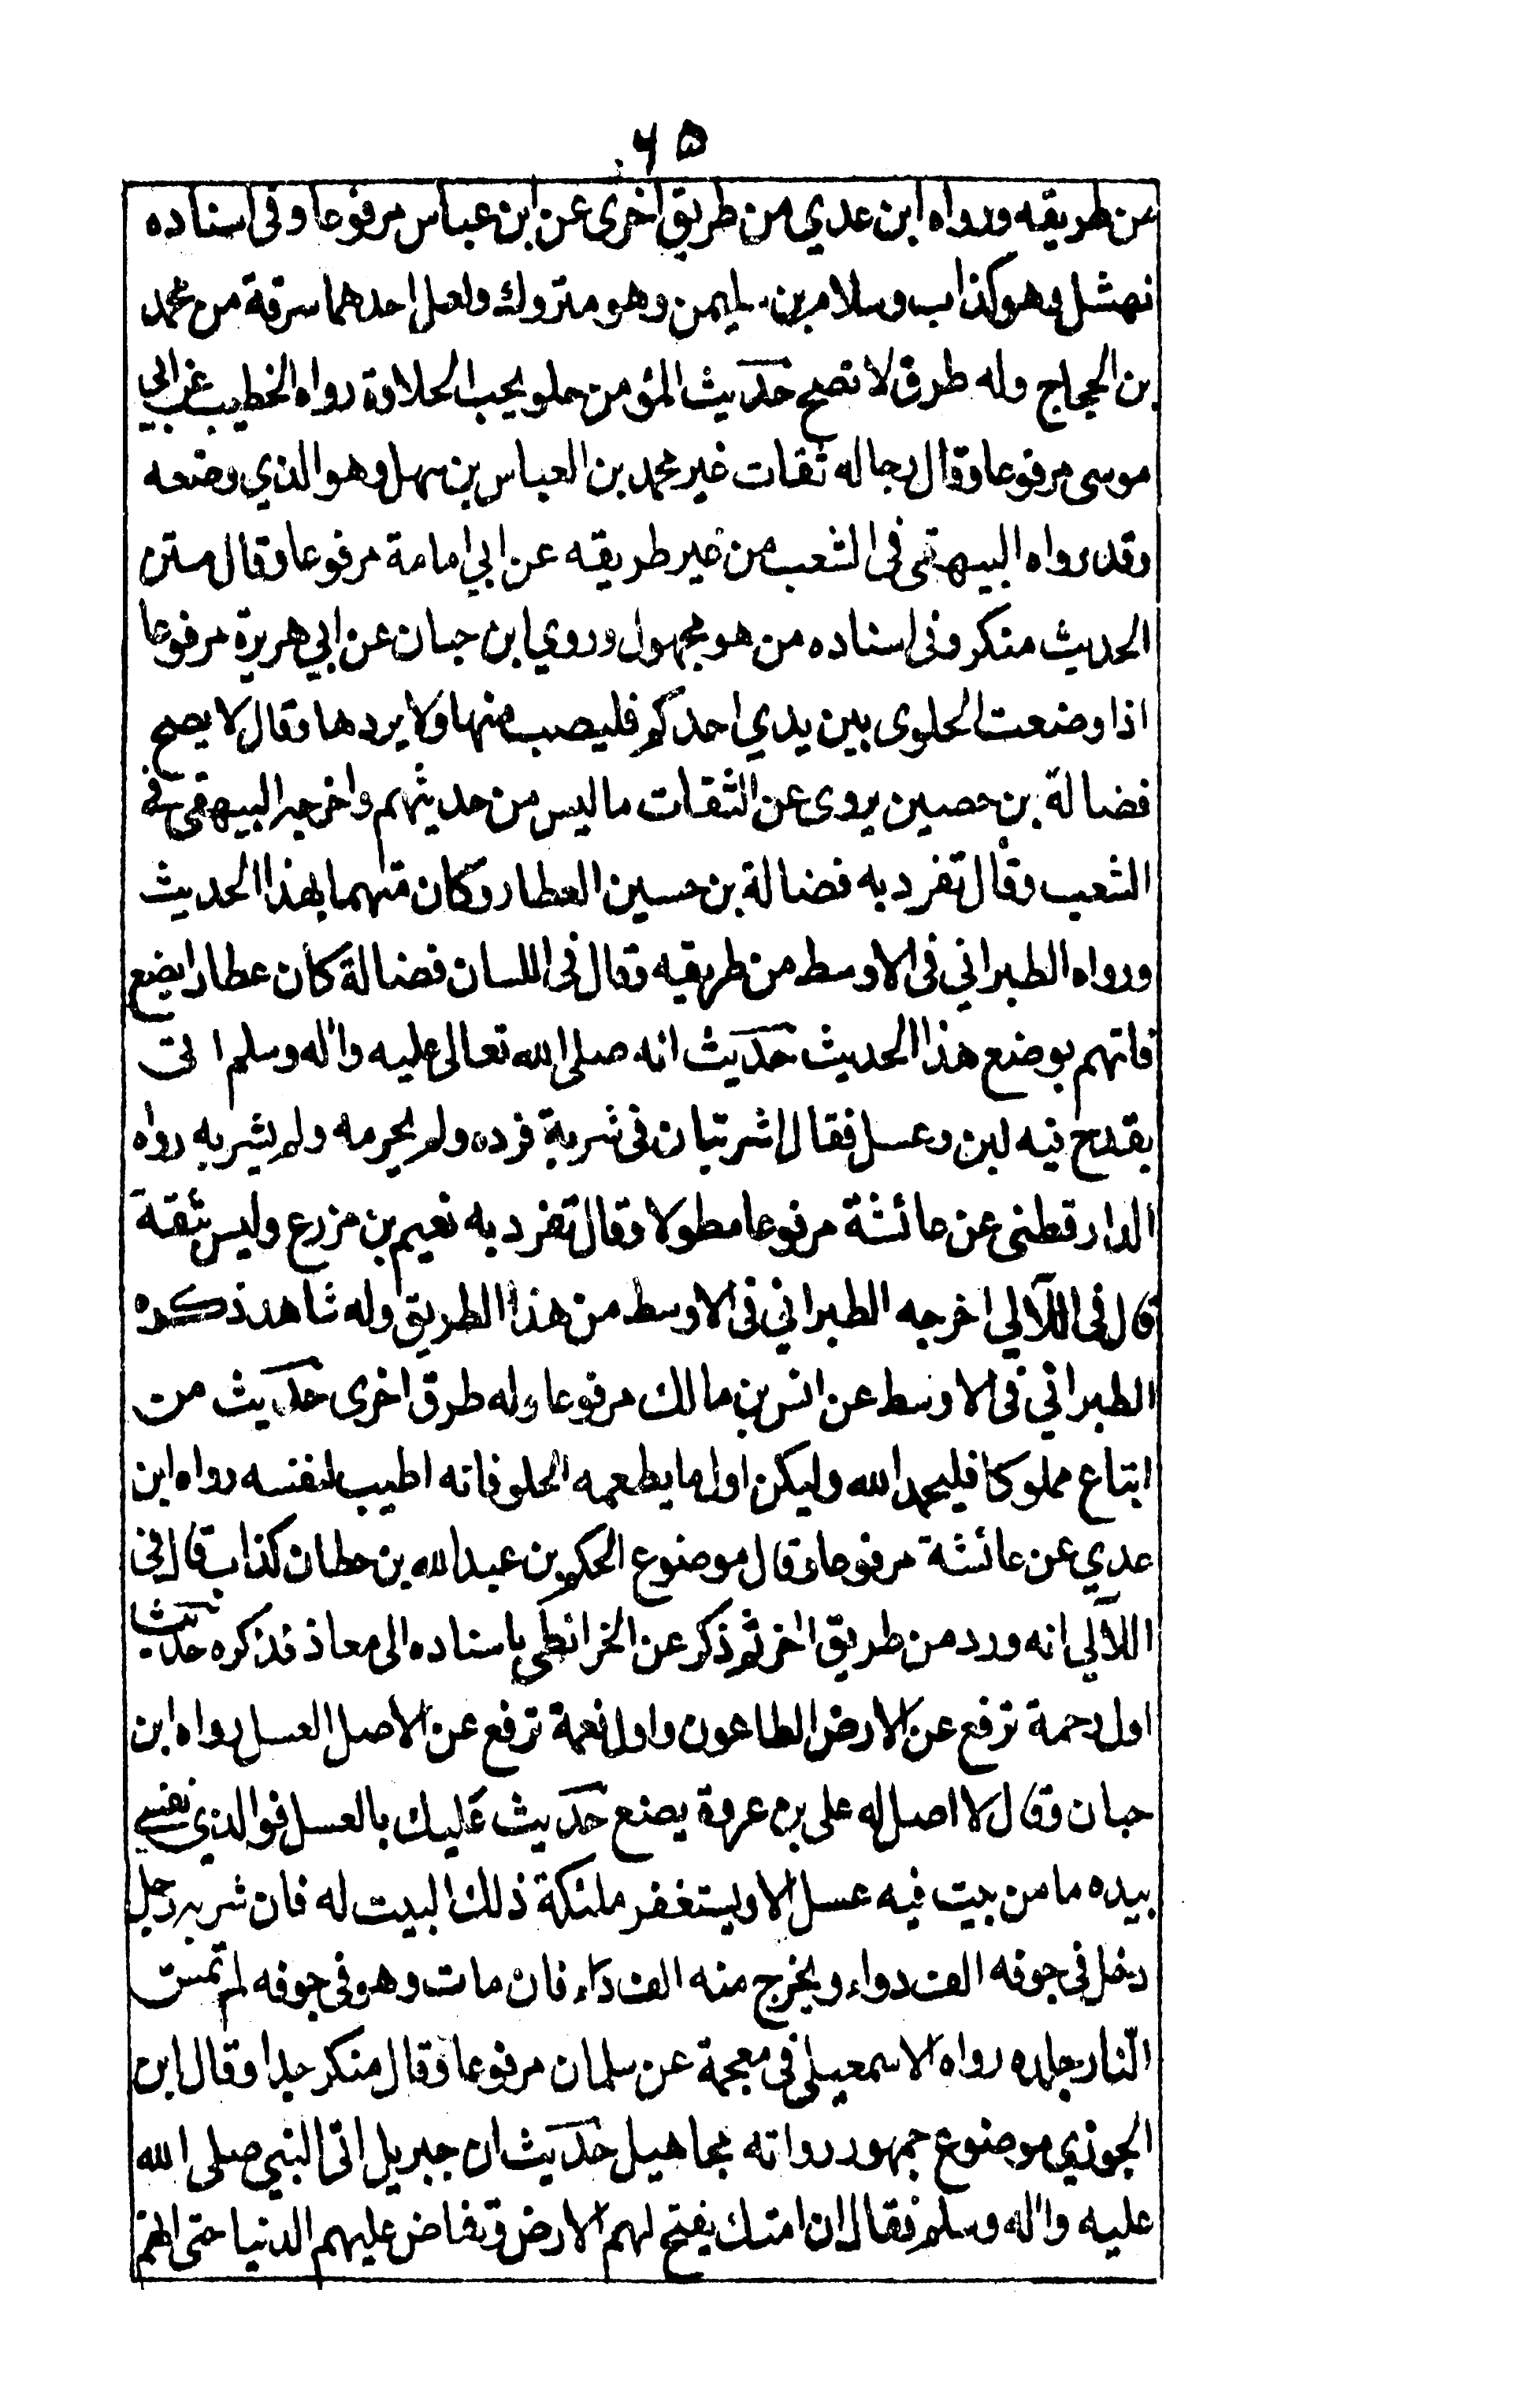 ۶۵
من طريقه ورواه ابن عدي من طريق اخرى عن ابن عباس مرفوعا وفى اسناده
نهشل وهو كذاب وسلام بن سليمن وهو متروك ولعل احدهما سرقة من محمد
بن الحجاج وله طرق لا تصح حديث المؤمن حلو يحب الحلاوة رواه الخطيب عن ابي
موسى مرفوعا وقال رجاله ثقات غير محمد بن العباس بن سهل وهو الذي وضعه
وقد رواه البيهقى فى الشعب من غير طريقه عن ابي امامة مرفوعا وقال متن
الحديث منكر وفى اسناده من هو مجهول وروي ابن حبان عن ابي هريرة مرفوعا
اذا وضعت الحلوى بين يدي احدكم فليصب منها ولا يردها وقال لا يصح
فضالة بن حصين يروى عن الثقات ما ليس من حديثهم واخرجه البيهقى فى
الشعب وقال تفرد به فضالة بن حسين العطار وكان متهما بهذا الحديث
ورواه الطبراني فى الاوسط من طريقه وقال فى اللسان فضالة كان عطارا يضع
فاتهم بوضع هذا الحديث حديث انه صلى الله تعالى عليه واله وسلم اتى
بقدح فيه لبن وعسل فقال اشربتان فى شربة فرده ولم يحرمه ولم يشربه رواه
الدارقطنى عن عائشة مرفوعا مطولا وقال تفرد به نعيم بن مزرع وليس بثقة
قال فى اللآلي اخرجه الطبراني فى الاوسط من هذا الطريق وله شاهد ذكره
الطبراني فى الاوسط عن انس بن مالك مرفوعا وله طرق اخرى حديث من
ابتاع مملوكا فليحمد الله وليكن اول ما يطعمه الحلو فانه اطيب لنفسه رواه ابن
عدي عن عائشة مرفوعا وقال موضوع الحكم بن عبد الله بن حطان كذاب قال فى
اللآلي انه ورد من طريق اخر ثم ذكر عن الخرائطى باسناده الى معاذ فذكره حديث
اول رحمة ترفع عن الارض الطاعون واول نعمة ترفع عن الاصل العسل رواه ابن
حبان وقال لا اصل له على بن عروة يضع حديث عليك بالعسل فوالذي نفسي
بيده ما من بيت فيه عسل الا ويستغفر ملئكة ذلك البيت له فان شربه رجل
دخل فى جوفه الف دواء ويخرج منه الف داء فان مات وهو فى جوفه لم تمس
النار جلده رواه الاسمعيلى فى معجمة عن سلمان مرفوعا وقال منكر جدا وقال ابن
الجوزي موضوع جمهور رواته مجاهيل حديث ان جبريل اتى النبي صلى الله
عليه واله وسلم فقال ان امتك يفتح لهم الارض وتفاض عليهم الدنيا حتى انهم